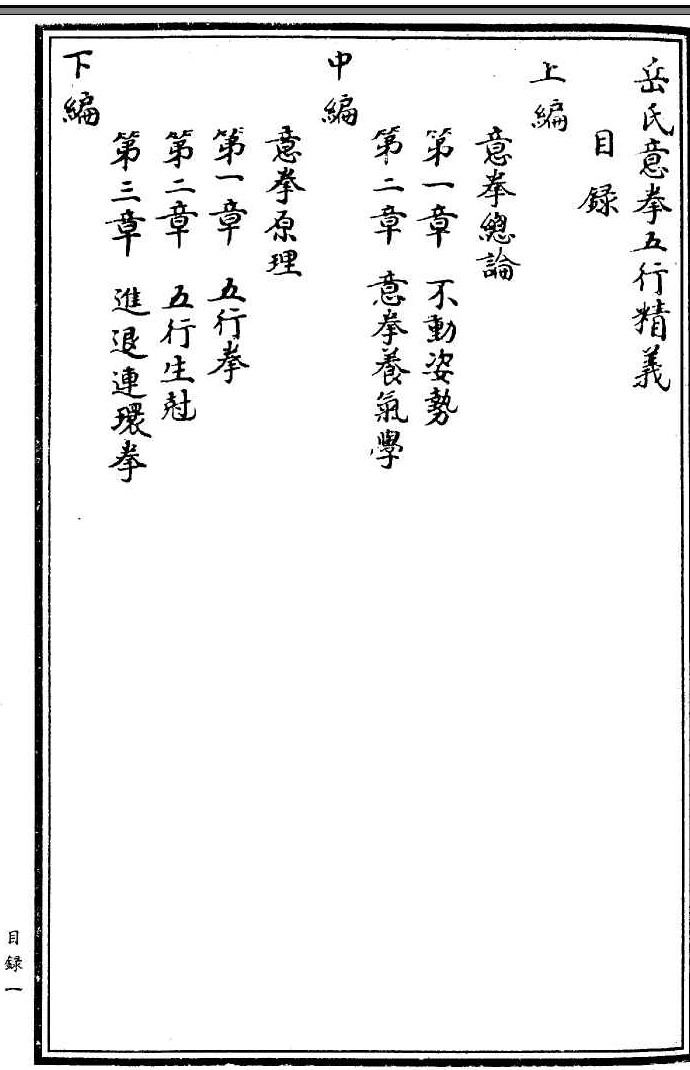 岳氏意拳五行精義
目録
上編
意拳總論
第一章 不動姿勢
第二章 意拳養氣學
中編
意拳原理
第一章 五行拳
第二章 五行生尅
第三章 進退連環拳
下編
目録一